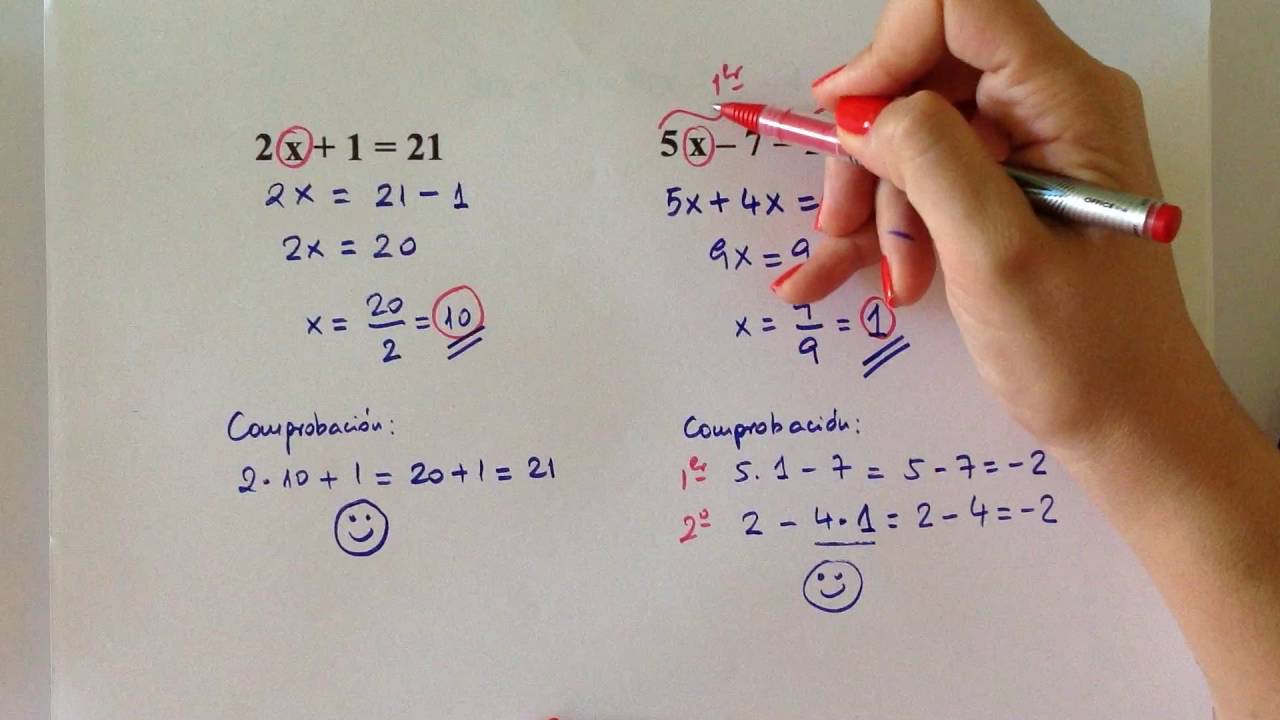 2x + 1 = 21
2x = 21 - 1
2x = 20
x = 20/2 = 10
Comprobación:
2·10 + 1 = 20 + 1 = 21
1er
5x - 7
5x + 4x =
9x = 9
x = /9 = 1
Comprobación:
1er 5·1 - 7 = 5 - 7 = -2
2º 2 - 4·1 = 2 - 4 = -2
OFFICE